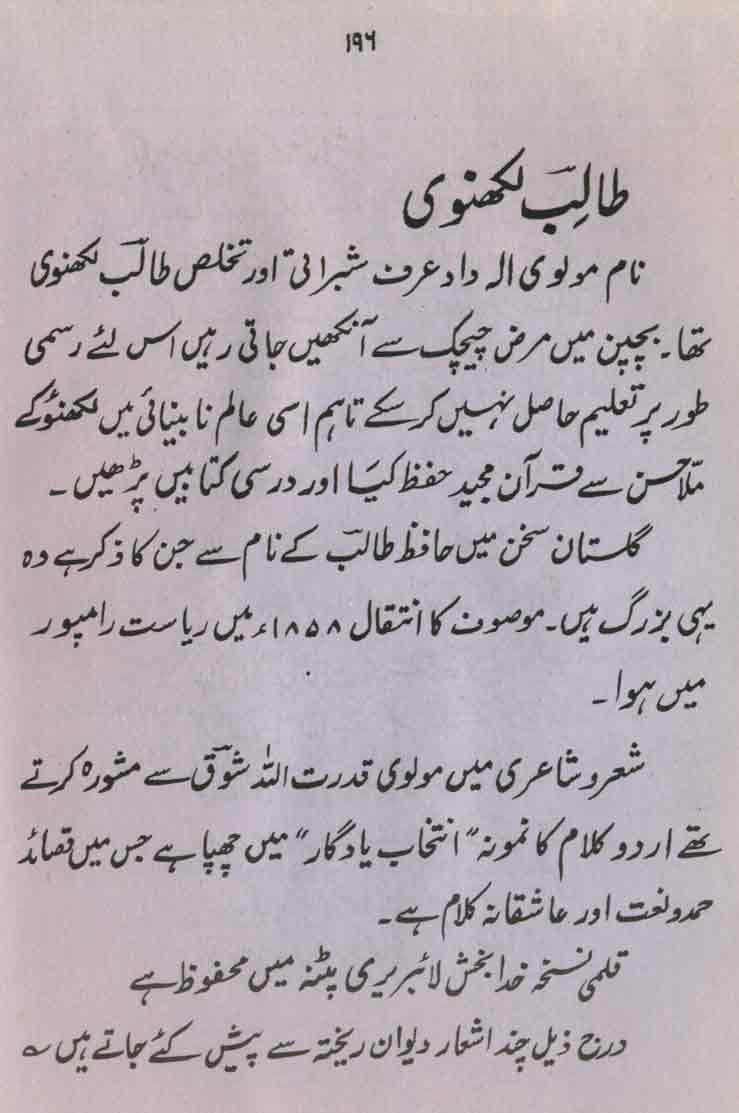 ۱۹۶
طالبؔ لکھنوی
نام مولوی الہ داد عرف شبراتی اور تخلص طالبؔ لکھنوی
تھا۔ بچپن میں مرض چیچک سے آنکھیں جاتی رہیں اس لئے رسمی
طور پر تعلیم حاصل نہیں کرسکے تاہم اسی عالم نابینائی میں لکھنؤ کے
ملّا حسن سے قرآن مجید حفظ کیا اور درسی کتابیں پڑھیں۔
گلستان سخن میں حافظ طالبؔ کے نام سے جن کا ذکر ہے وہ
یہی بزرگ ہیں۔ موصوف کا انتقال ۱۸۵۸ء میں ریاست رامپور
میں ہوا۔
شعر و شاعری میں مولوی قدرت اللہ شوقؔ سے مشورہ کرتے
تھے اردو کلام کا نمونہ "انتخاب یادگار" میں چھپا ہے جس میں قصائد
حمد و نعت اور عاشقانہ کلام ہے۔
قلمی نسخہ خدابخش لائبریری پٹنہ میں محفوظ ہے
درج ذیل چند اشعار دیوان ریختہ سے پیش کئے جاتے ہیں ؎